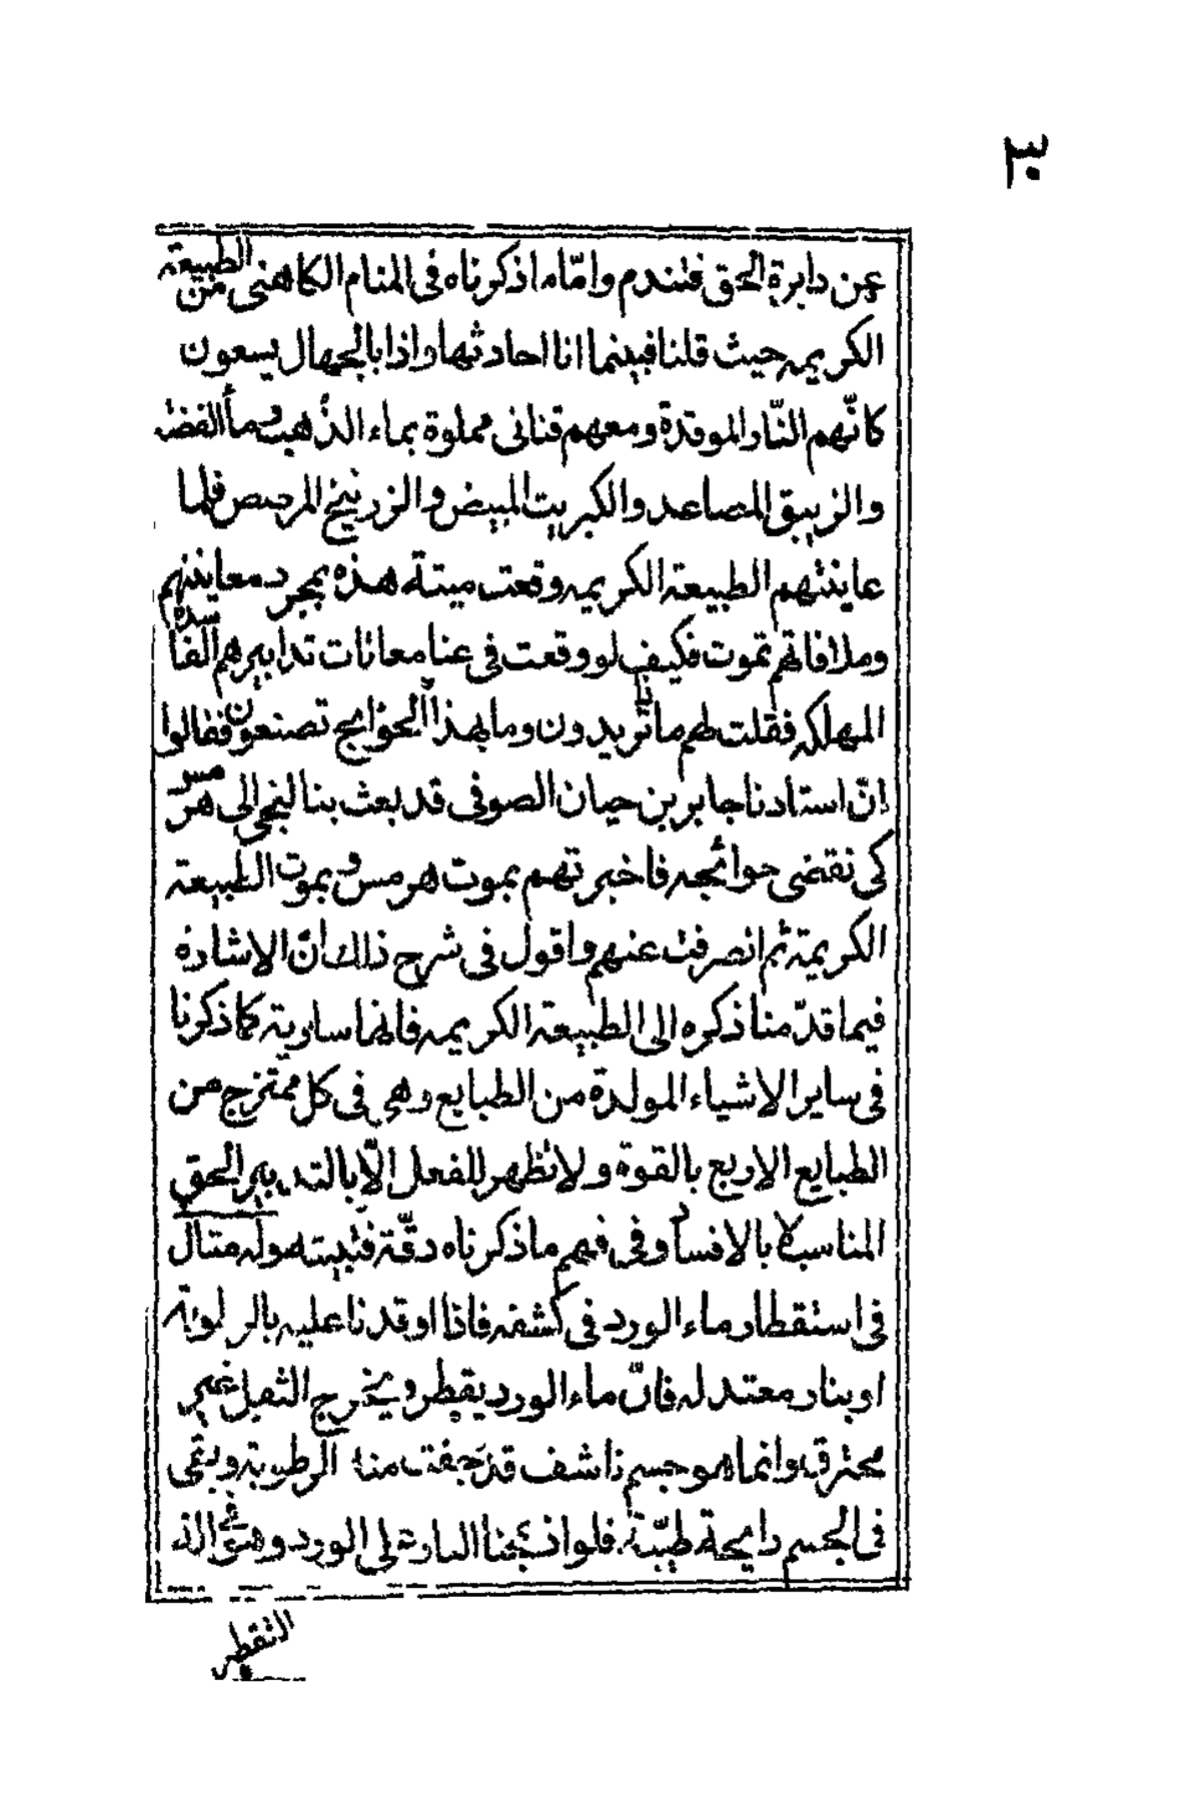 ٣٠
عن دايرة الحق فتندم وامّا ما ذكرناه فى المنام الكاهنى من الطبيعة
الكريمه حيث قلنا فبينما انا احادثها واذا بالجهال يسعون
كانّهم النّار الموقدة ومعهم قنانى مملوة بماء الذّهب وماء الفضة
والزيبق المصاعد والكبريت المبيض والزرنيخ المرصص فلما
عاينتهم الطبيعة الكريمه وقعت ميتة هذه بمجرد معاينتهم
وملاقاتهم تموت فكيف لو وقعت فى عنا معانات تدابيرهم الفاسدة
المهلكه فقلت لهم ما تريدون وما بهذا الحوايج تصنعون فقالوا
انّ استادنا جابر بن حيان الصوفى قد بعث بنا لنجى الى هرمس
كى نقضى حوائجه فاخبرتهم بموت هرمس وبموت الطبيعة
الكريمة ثم انصرفت عنهم واقول فى شرح ذلك انّ الاشارة
فيما قدّمنا ذكره الى الطبيعة الكريمه فانها سارية كما ذكرنا
فى ساير الاشياء المولدة من الطبايع وهى فى كل ممتزج من
الطبايع الاربع بالقوة ولا تظهر للفعل الّا بالتدبير الحق
المناسب لا بالافساد وفى فهم ما ذكرناه دقّة فتبيته هوله متال
فى استقطار ماء الورد فى كشفه فاذا اوقدنا عليه بالرطوبة
او بنار معتدله فانّ ماء الورد يقطر ويخرج الثفل غير
محترق وانما هو جسم ناشف قد جفت منه الرطوبة ويبقى
فى الجسم رايحة طيّبة فلو اذ النار على الورد وهو فى الة
التقطير